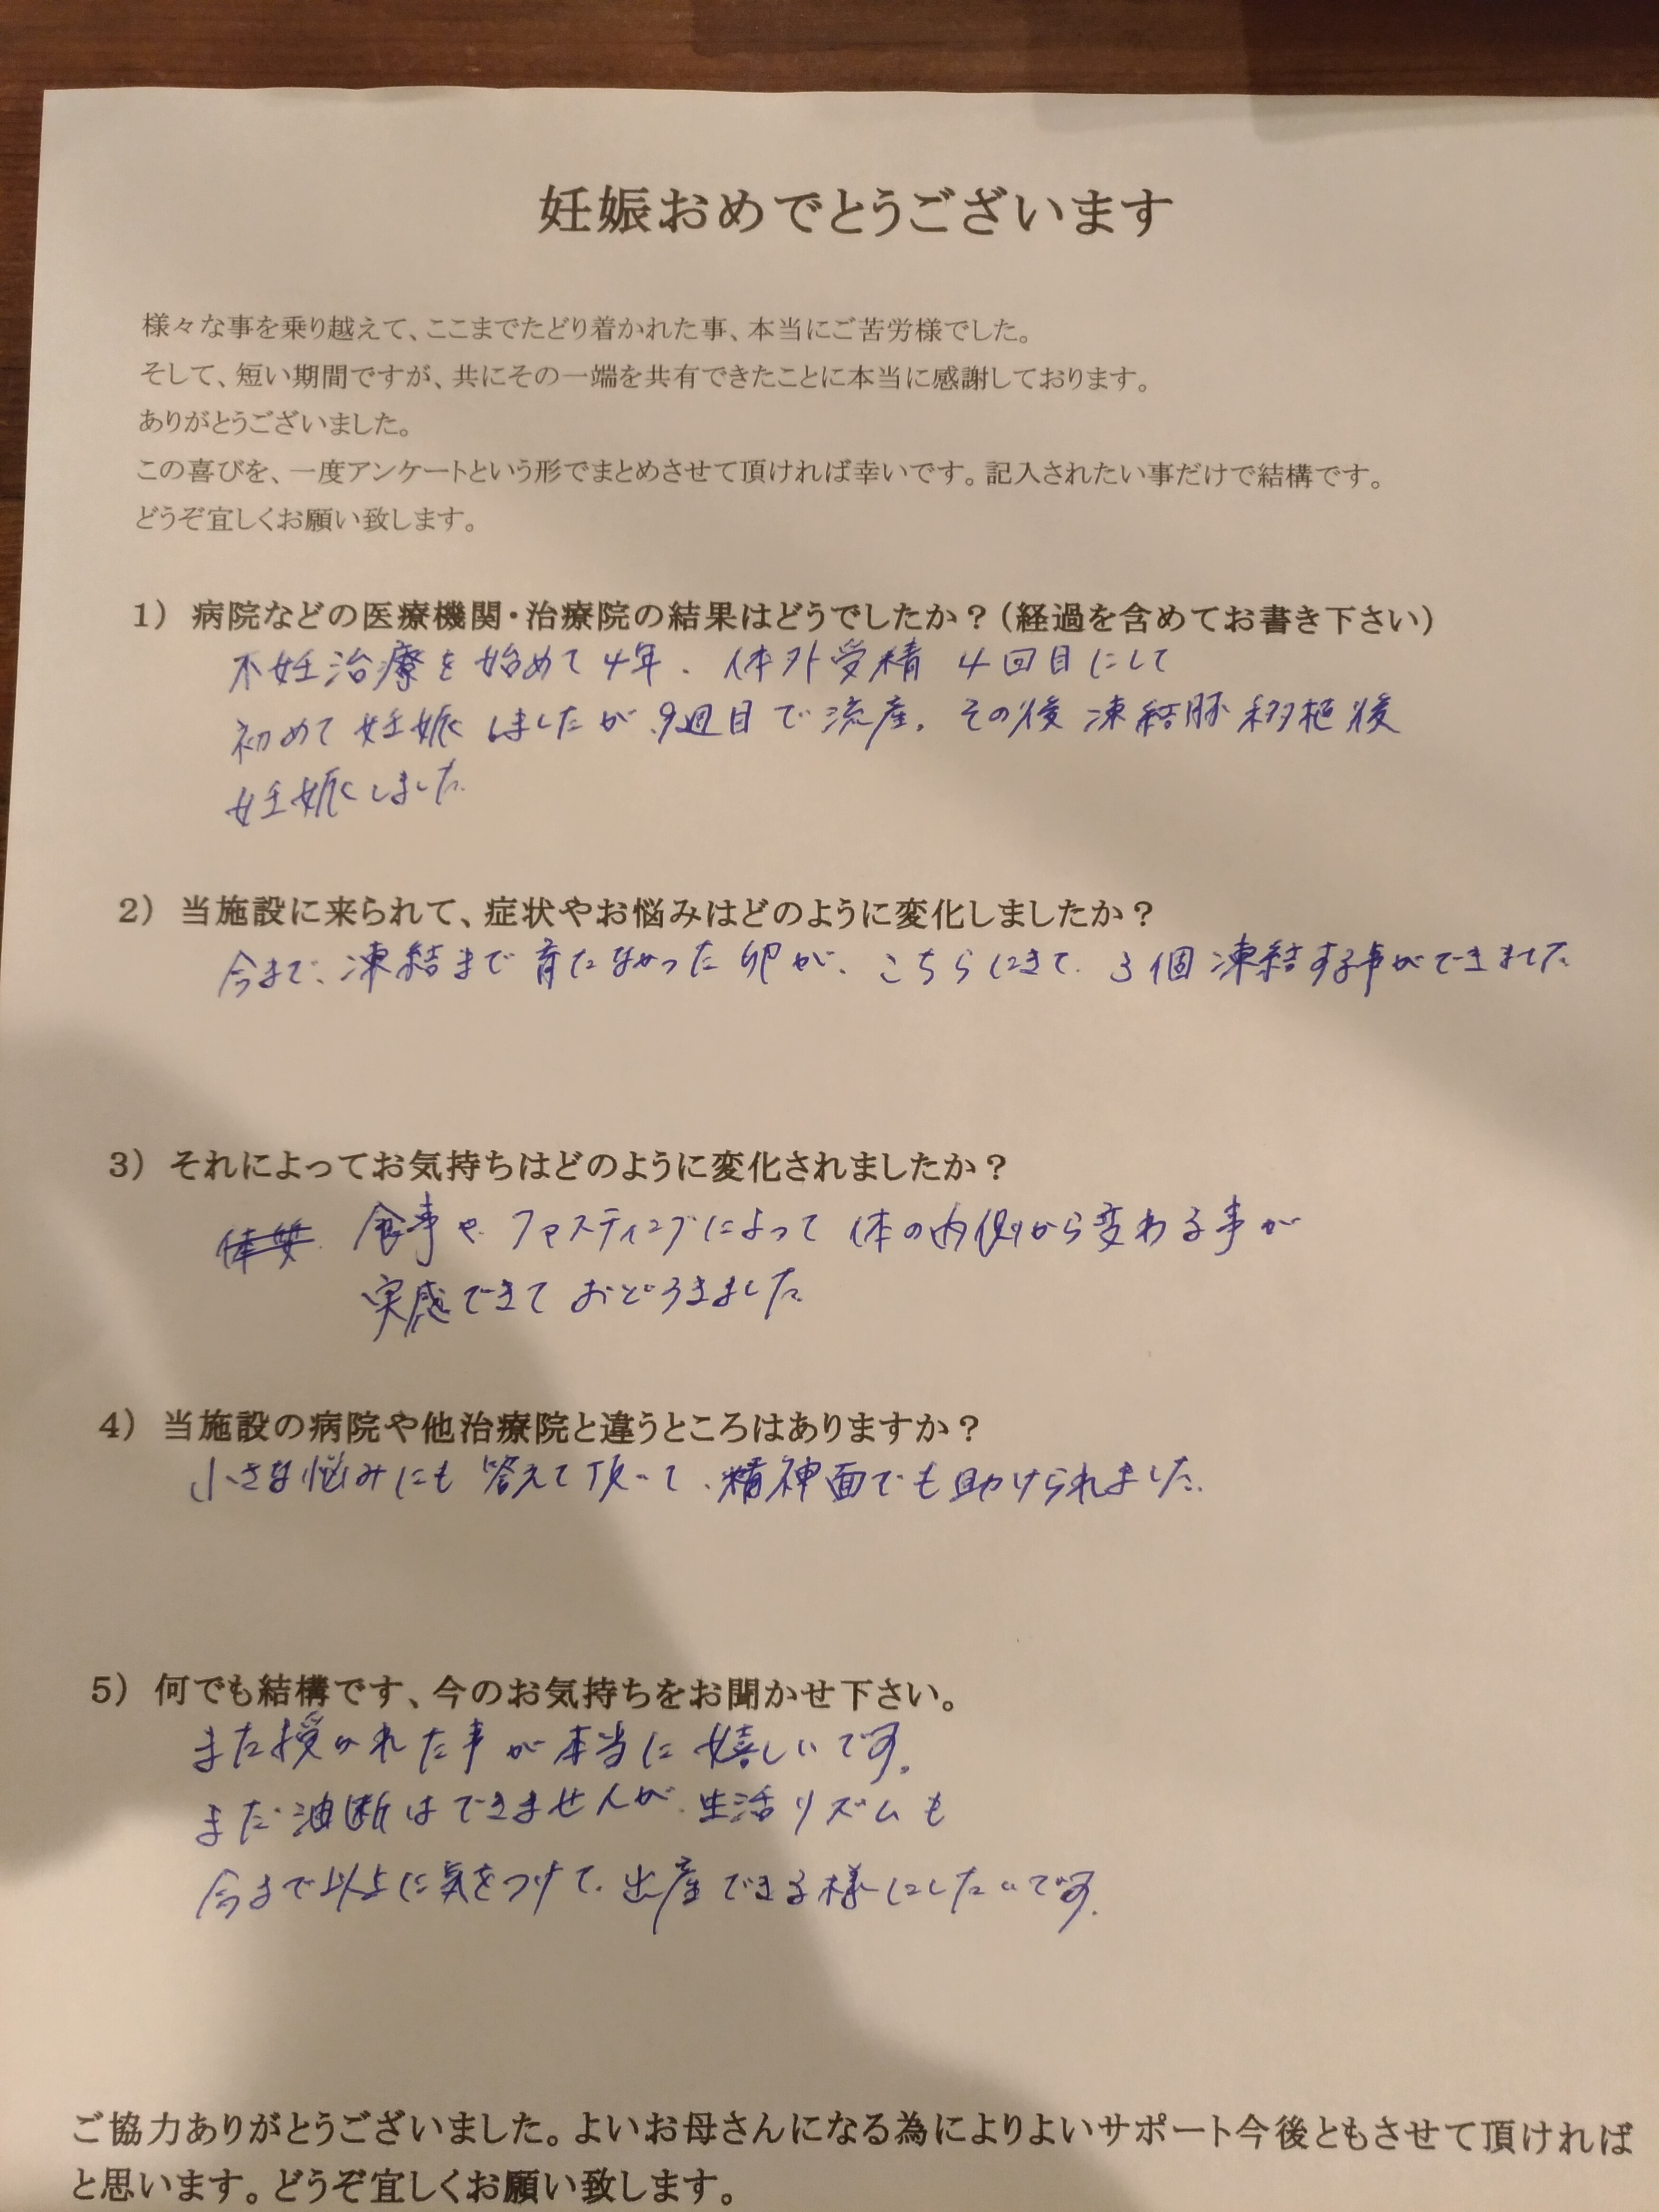 妊娠おめでとうございます
様々な事を乗り越えて、ここまでたどり着かれた事、本当にご苦労様でした。
そして、短い期間ですが、共にその一端を共有できたことに本当に感謝しております。
ありがとうございました。
この喜びを、一度アンケートという形でまとめさせて頂ければ幸いです。記入されたい事だけで結構です。
どうぞ宜しくお願い致します。
1）病院などの医療機関・治療院の結果はどうでしたか？（経過を含めてお書き下さい）
不妊治療を始めて4年、体外受精 4回目にして
初めて妊娠しましたが、9週目で流産。その後 凍結胚移植後
妊娠しました。
2）当施設に来られて、症状やお悩みはどのように変化しましたか？
今まで、凍結まで育たなかった卵が、こちらにきて、3個凍結する事ができました
3）それによってお気持ちはどのように変化されましたか？
体質 食事や、ファスティングによって 体の内側から変わる事が
実感できて おどろきました
4）当施設の病院や他治療院と違うところはありますか？
小さな悩みにも 答えて頂いて、精神面でも助けられました。
5）何でも結構です、今のお気持ちをお聞かせ下さい。
また授かれた事が本当に嬉しいです。
まだ油断はできませんが、生活リズムも
今まで以上に気をつけて、出産できる様にしたいです。
ご協力ありがとうございました。よいお母さんになる為によりよいサポート今後ともさせて頂ければ
と思います。どうぞ宜しくお願い致します。